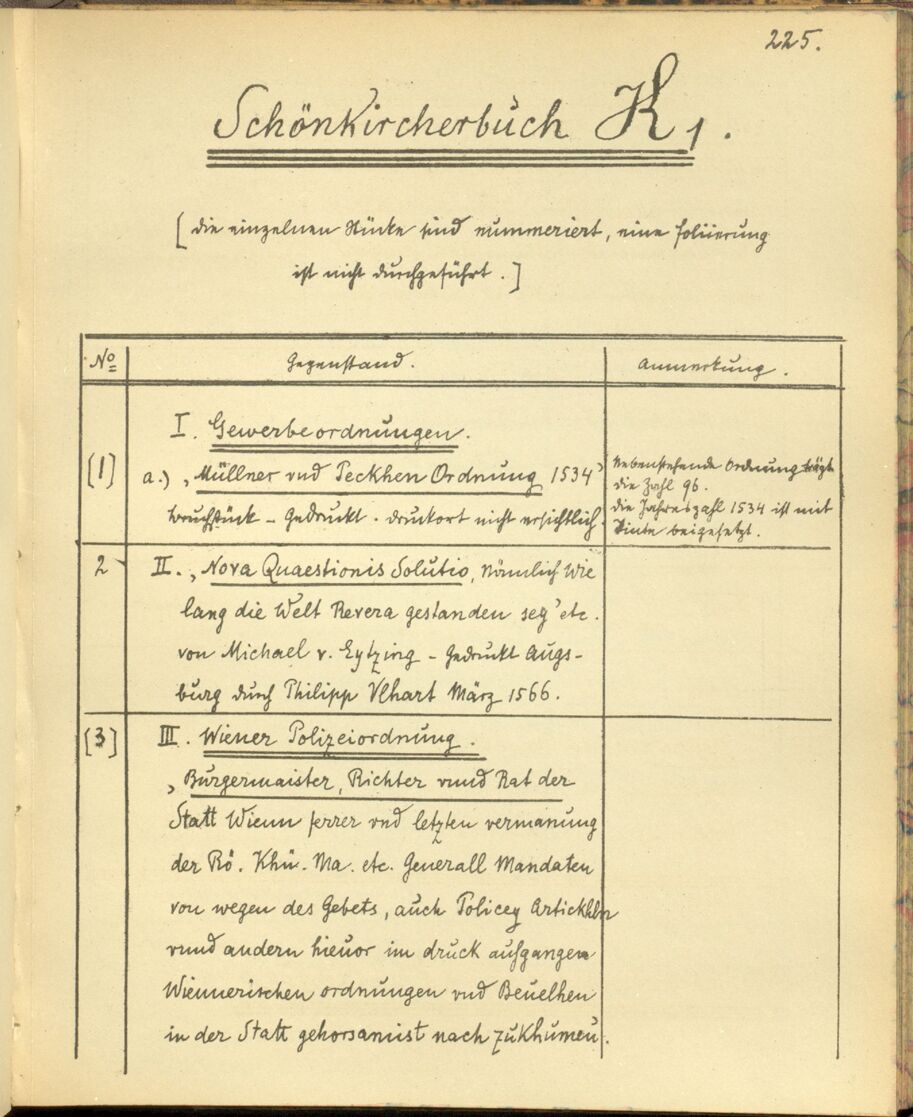 225.
Schönkircherbuch K 1.
[die einzelnen Stücke sind nummeriert, eine Foliierung
ist nicht durchgeführt.]
No Gegenstand. Anmerkung.
I. Gewerbeordnungen.
(1) a.) „Müllner vnd Peckhen Ordnung 1534“
Bruchstück – Gedruckt. Druckort nicht ersichtlich.
Nebenstehende Ordnung trägt
die Zahl 96.
die Jahreszahl 1534 ist mit
Tinte beigesetzt.
2 II. „Nova Quaestionis Solutio, Nämlich Wie
lang die Welt Revera gestanden sey“ etc.
von Michael v. Eytzing – Gedruckt Augs-
burg durch Philipp Vlhart März 1566.
[3] III. Wiener Polizeiordnung.
„Burgermaister, Richter vnnd Rat der
Statt Wienn ferrer vnd letzten vermanung
der Rö. Khü. Ma. etc. Generall Mandaten
von wegen des Gebets, auch Policey Artickhln
vnnd andern hieuor im druck aufgangen
Wiennerischen ordnungen vnd Beuelhen
in der Statt gehorsamist nach zukhumen.